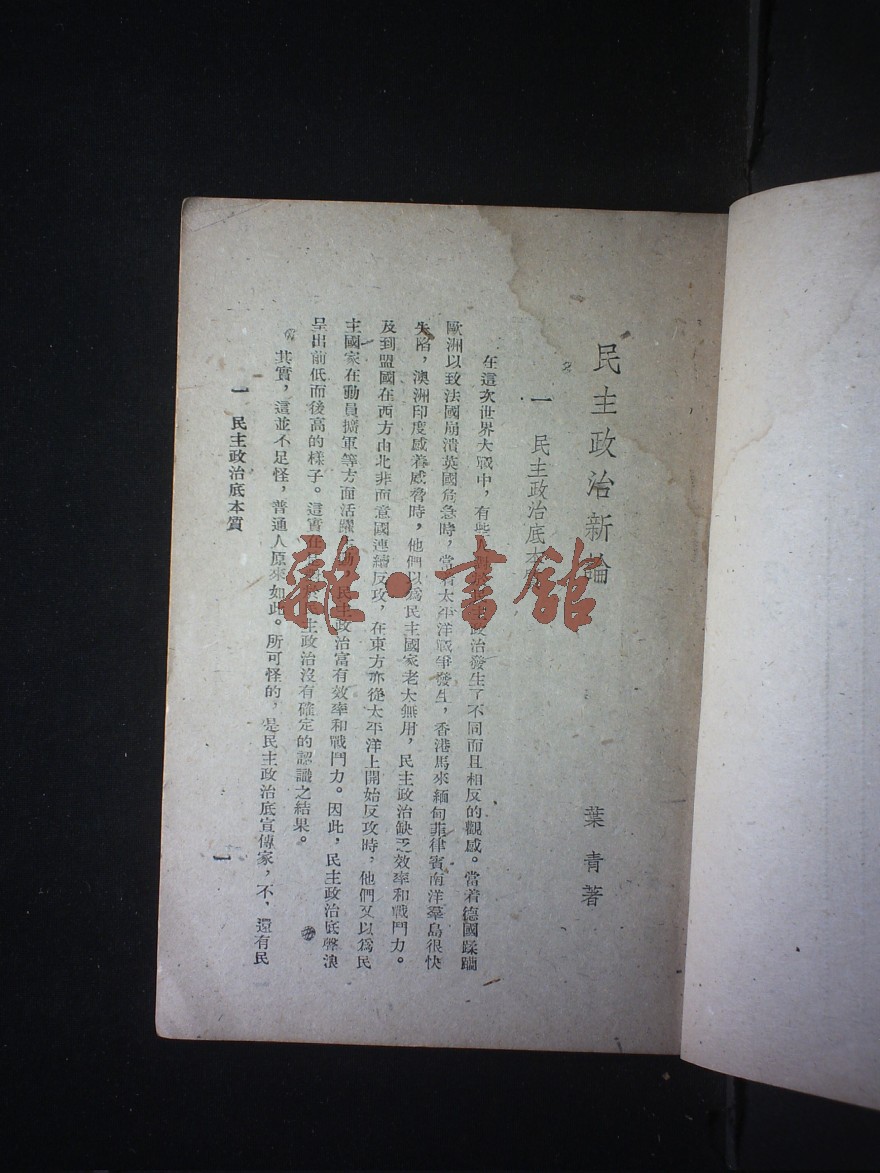 民主政治新論
葉青著
一 民主政治底本
在這次世界大戰中，有些 主政治發生了不同而且相反的觀感。當着德國蹂躪
歐洲以致法國崩潰英國危急時，當着太平洋戰爭發生，香港馬來緬甸菲律賓南洋羣島很快
失陷，澳洲印度感着威脅時，他們以爲民主國家老大無用，民主政治缺乏效率和戰鬥力。
及到盟國在西方由北非而意國連續反攻，在東方亦從太平洋上開始反攻時，他們又以爲民
主國家在動員擴軍等方面活躍 民主政治富有效率和戰鬥力。因此，民主政治底聲浪
呈出前低而後高的樣子。這實在 主政治沒有確定的認識之結果。
其實，這並不足怪，普通人原來如此。所可怪的，是民主政治底宣傳家，不，還有民
一 民主政治底本質
一
雜·書館